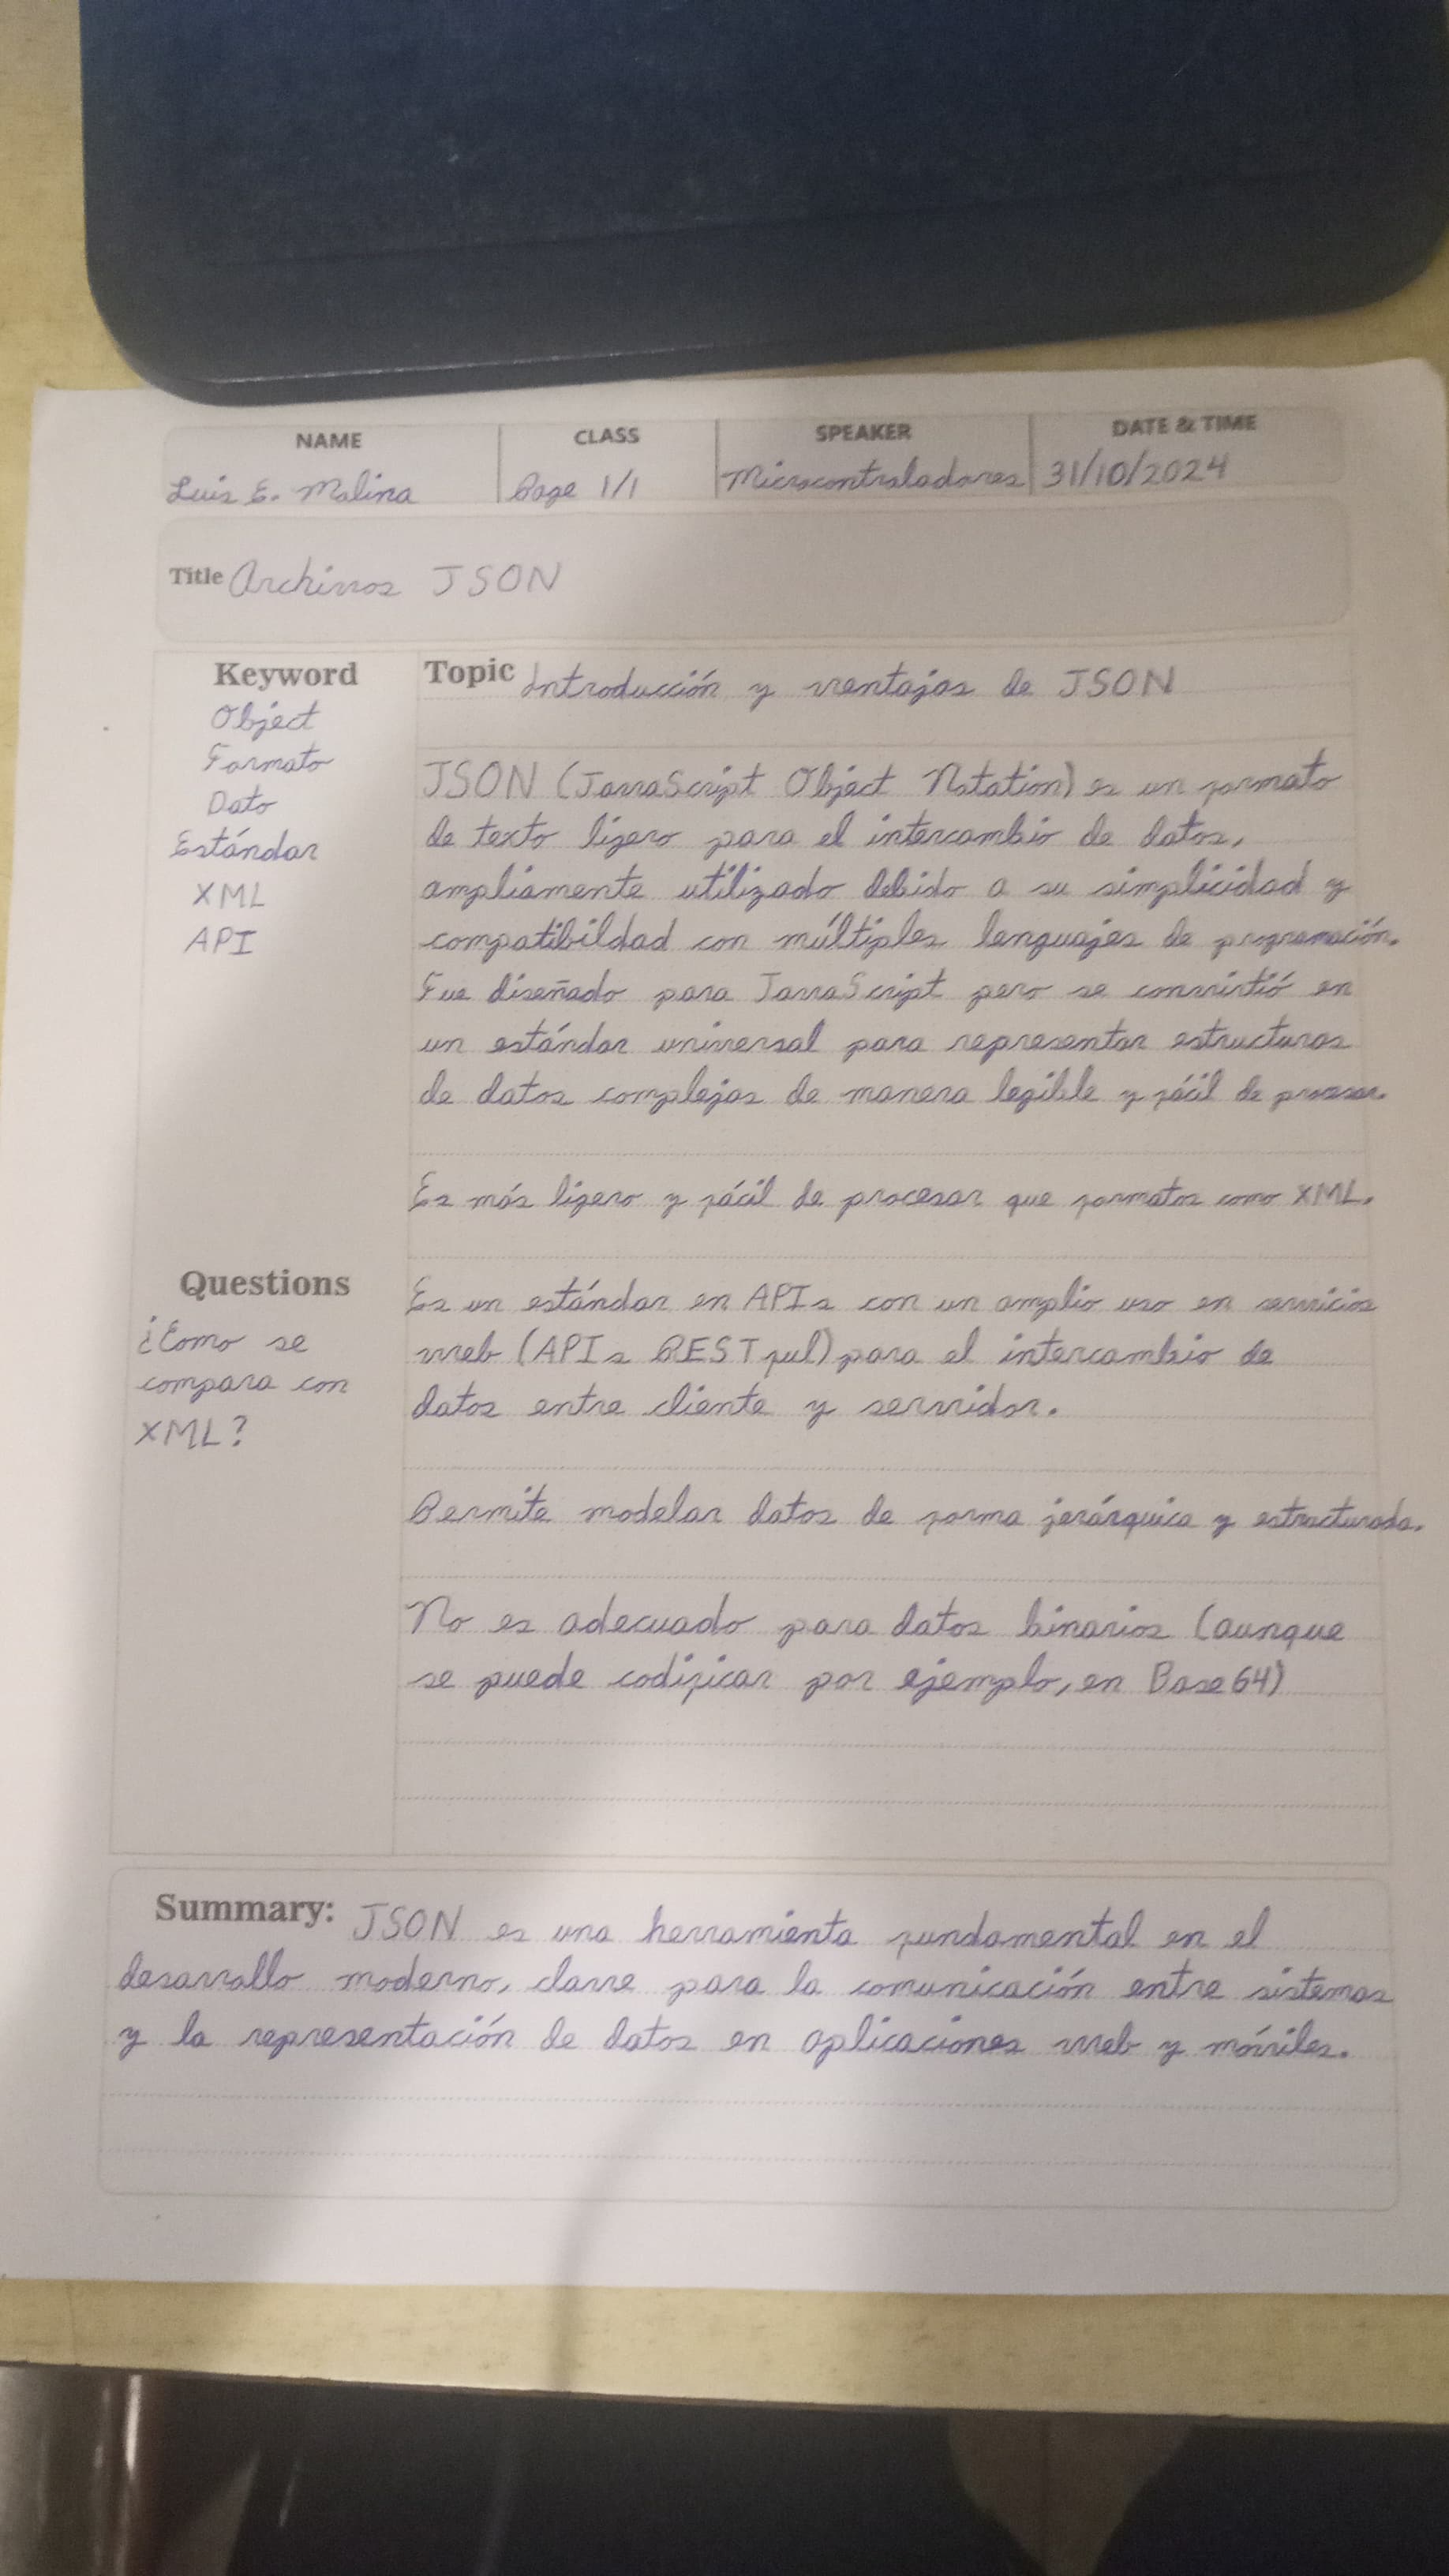 NAME CLASS SPEAKER DATE & TIME
Luis E. Molina Page 1/1 Microcontroladores 31/10/2024
Title Archivos JSON
Keyword
Object
Formato
Dato
Estándar
XML
API
Topic Introducción y ventajas de JSON
JSON (JavaScript Object Notation) es un formato
de texto ligero para el intercambio de datos,
ampliamente utilizado debido a su simplicidad y
compatibildad con múltiples lenguajes de programación.
Fue diseñado para JavaScript pero se convirtió en
un estándar universal para representar estructuras
de datos complejas de manera legible y fácil de procesar.
Es más ligero y fácil de procesar que formatos como XML.
Questions
¿Como se
compara con
XML?
Es un estándar en APIs con un amplio uso en servicios
web (APIs RESTful) para el intercambio de
datos entre cliente y servidor.
Permite modelar datos de forma jerárquica y estructurada.
No es adecuado para datos binarios (aunque
se puede codificar por ejemplo, en Base64)
Summary: JSON es una herramienta fundamental en el
desarrollo moderno, clave para la comunicación entre sistemas
y la representación de datos en aplicaciones web y móviles.